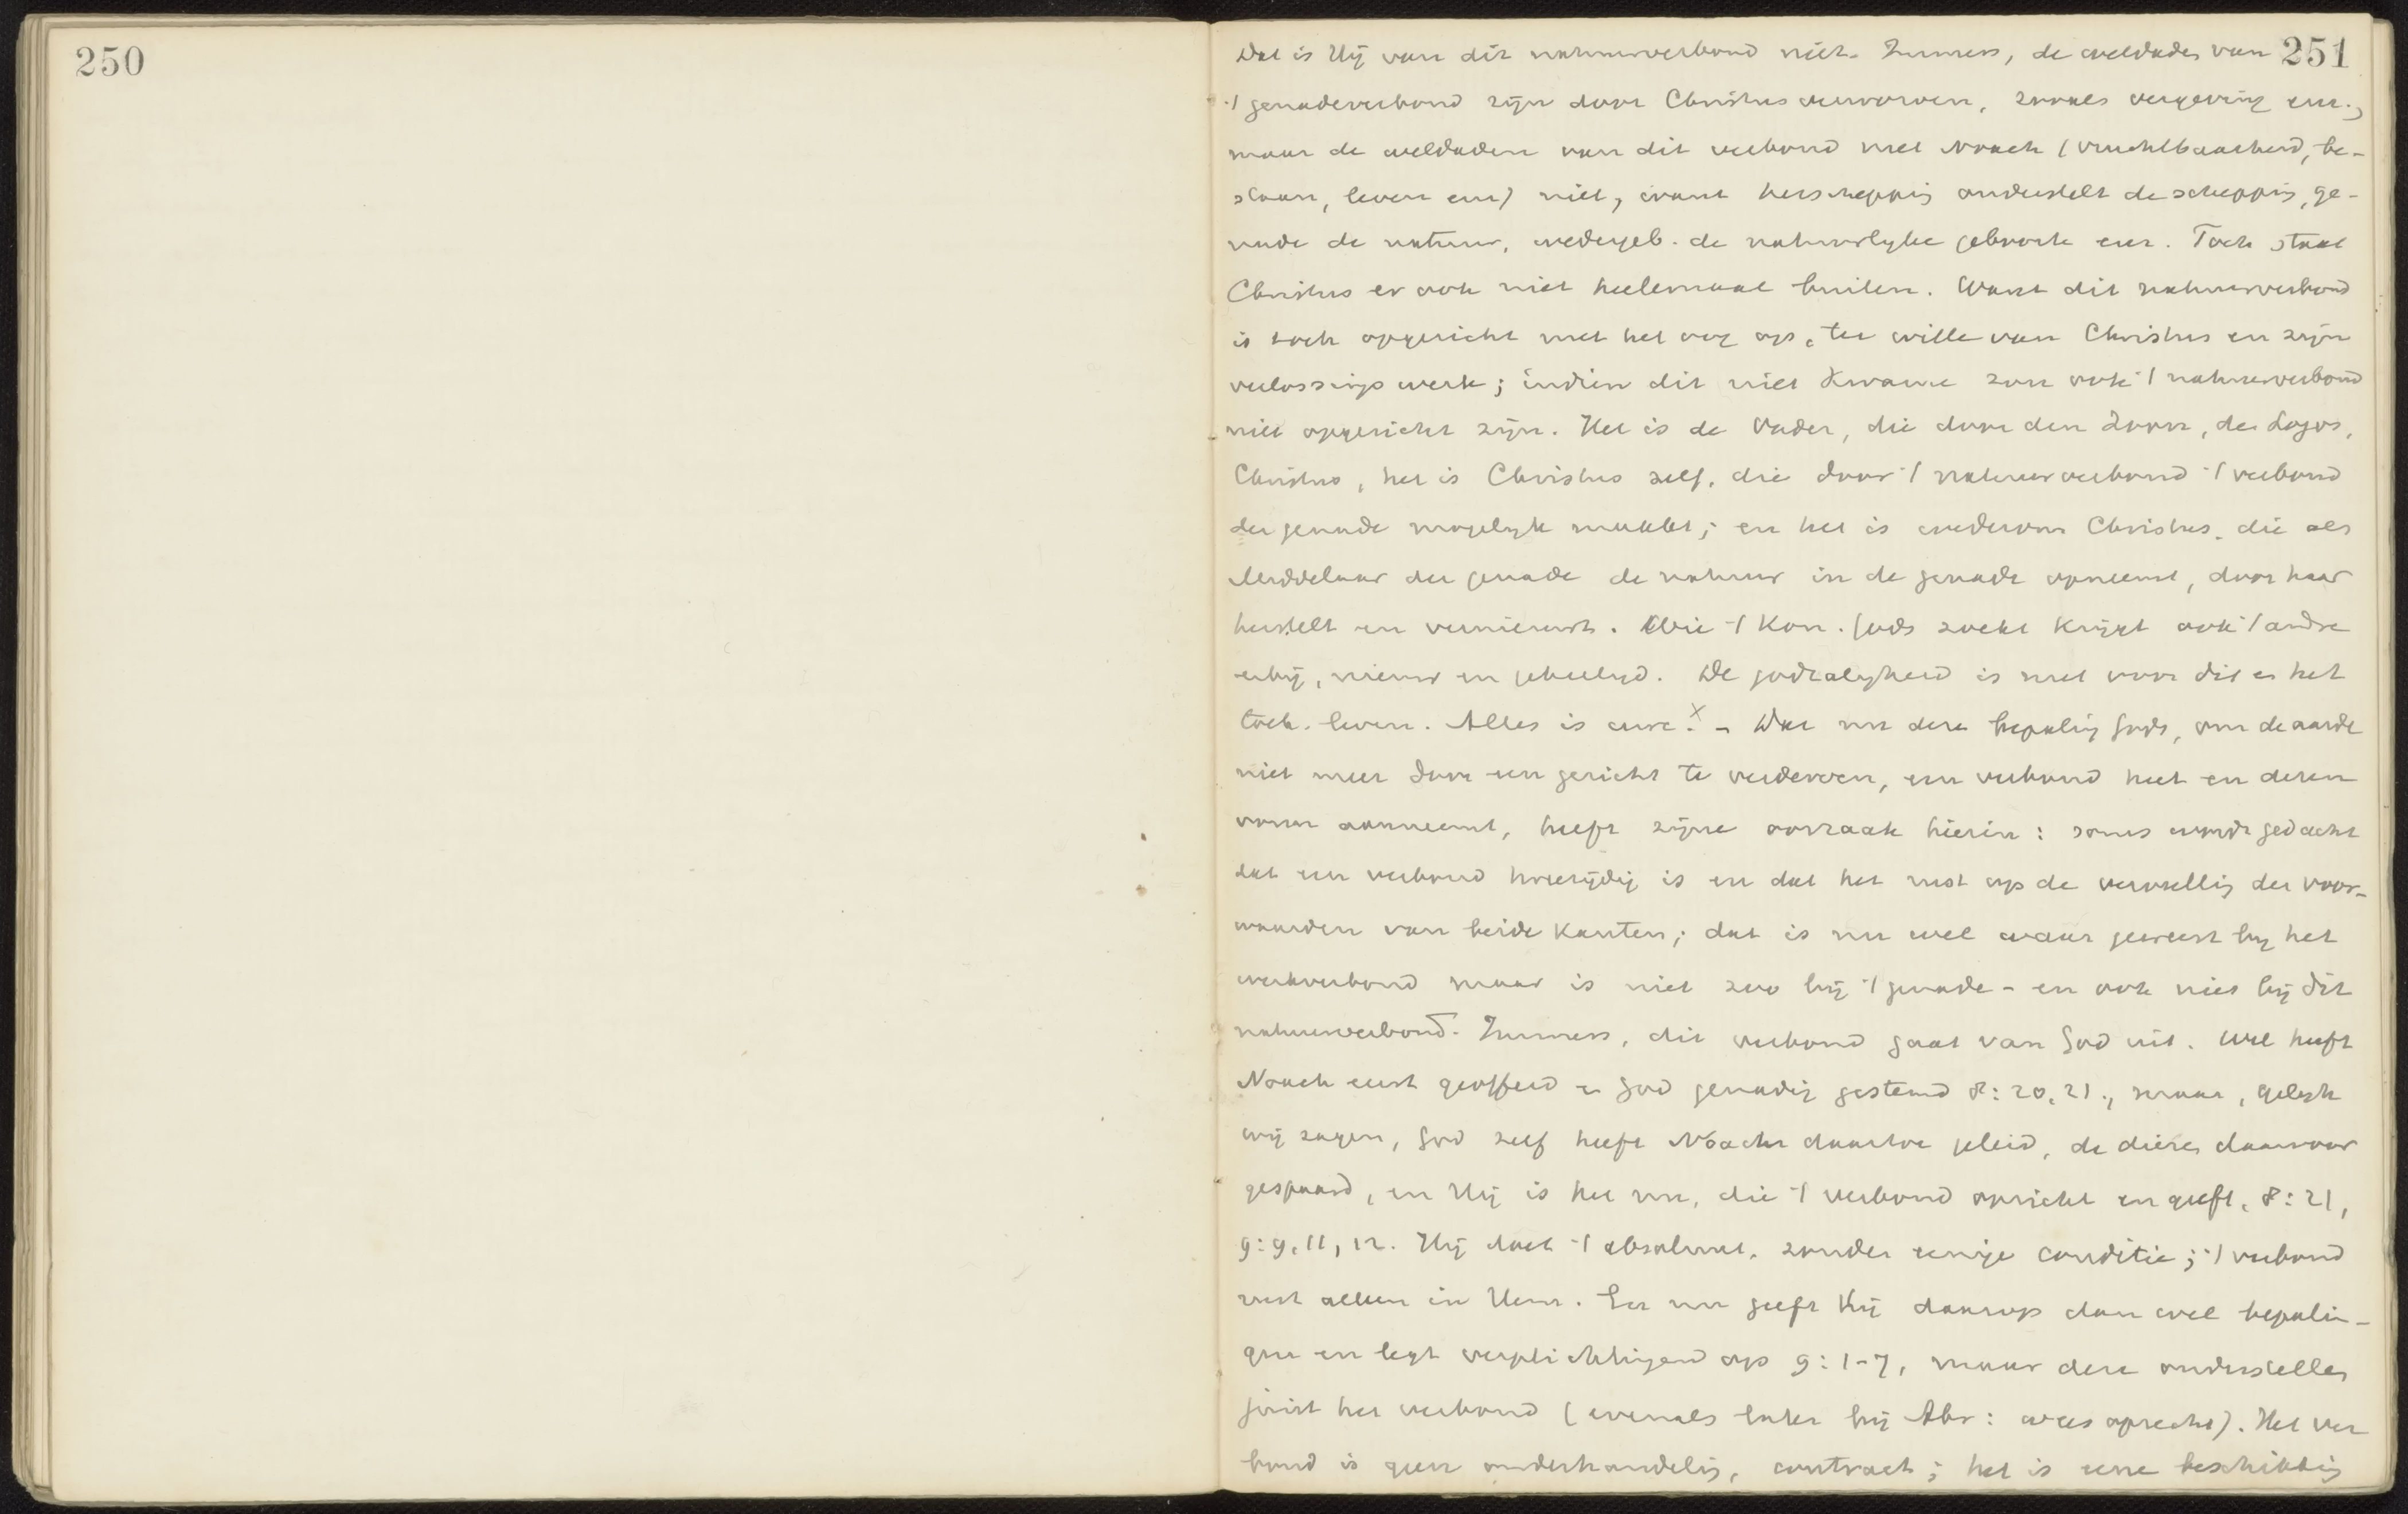 250
251
Dat is Hij van dit natuurverbond niet. Immers, de weldaden van
't genadeverbond zijn door Christus verworven, zooals vergeving enz.,
maar de weldaden van dit verbond met Noach (vruchtbaarheid, be-
staan, leven enz) niet, want herschepping onderstelt de schepping, ge-
nade de natuur, wedergeb. de natuurlyke geboorte enz. Toch staat
Christus er ook niet heelemaal buiten. Want dit natuurverbond
is toch opgericht met het oog op, ter wille van Christus en zijn
verlossingswerk; indien dit niet kwame zou ook 't natuurverbond
niet opgericht zijn. Het is de Vader, die door den Zoon, de Logos,
Christus, het is Christus zelf, die door 't natuurverbond 't verbond
der genade mogelyk maakt; en het is wederom Christus, die als
Middelaar der genade de natuur in de genade opneemt, door haar
herstelt en vernieuwt. Wie 't Kon. Gods zoekt krijgt ook 't andre
erbij, nieuw en geheiligd. De godzaligheid is nut voor dit en het
toek. leven. Alles is uwe. x – Dat nu deze bepaling Gods, om de aarde
niet meer door een gericht te verderven, een verbond heet en dezen
vorm aanneemt, heeft zijne oorzaak hierin: soms wordt gedacht
dat een verbond tweezijdig is en dat het rust op de vervulling der voor-
waarden van beide kanten; dat is nu wel waar geweest bij het
werkverbond maar is niet zoo bij 't genade- en ook niet bij dit
natuurverbond. Immers, dit verbond gaat van God uit. Wel heeft
Noach eerst geofferd en God genadig gestemd 8:20, 21., maar, gelyk
wij zagen, God zelf heeft Noach daartoe geleid, de dieren daarvoor
gespaard, en Hij is het nu, die 't verbond opricht en geeft. 8:21,
9:9, 11, 12. Hij doet 't absoluut, zonder eenige conditie; 't verbond
rust alleen in Hem. En nu geeft Hij daarop dan wel bepalin-
gen en legt verplichtingen op 9:1-7, maar deze onderstellen
juist het verbond (evenals later bij Abr: wees oprecht). Het ver
bond is geen onderhandeling, contract; het is eene beschikking